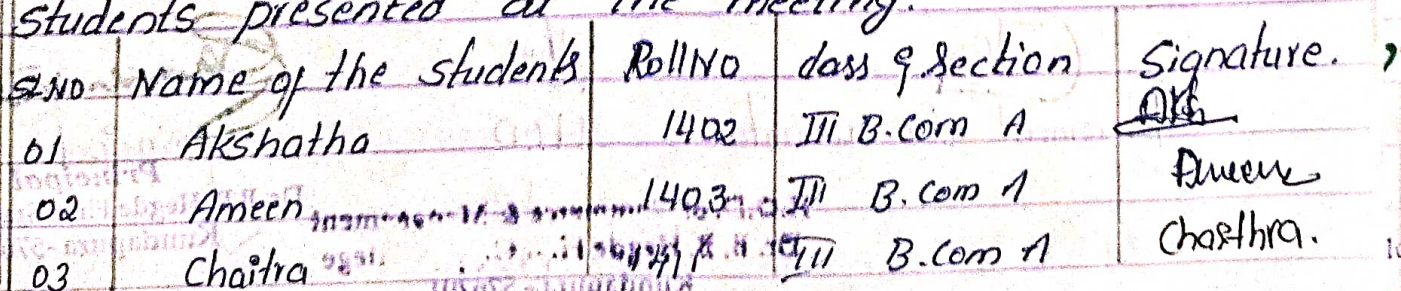 Students presented at the meeting.
Sl.NO Name of the students RollNo class & Section Signature.
01 Akshatha 1402 III B.Com A
02 Ameen 1403 III B.Com A Ameen
03 Chaitra III B.Com A Chaithra.